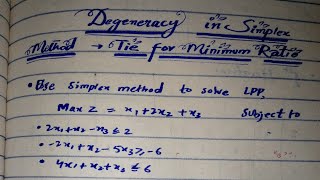 Degeneracy in Simplex
Method → Tie for Minimum Ratio
• Use Simplex method to solve LPP
Max Z = x₁+2x₂+x₃ Subject to
• 2x₁+x₂-x₃ ≤ 2
• -2x₁+x₂-5x₃ ≥ -6
• 4x₁+x₂+x₃ ≤ 6